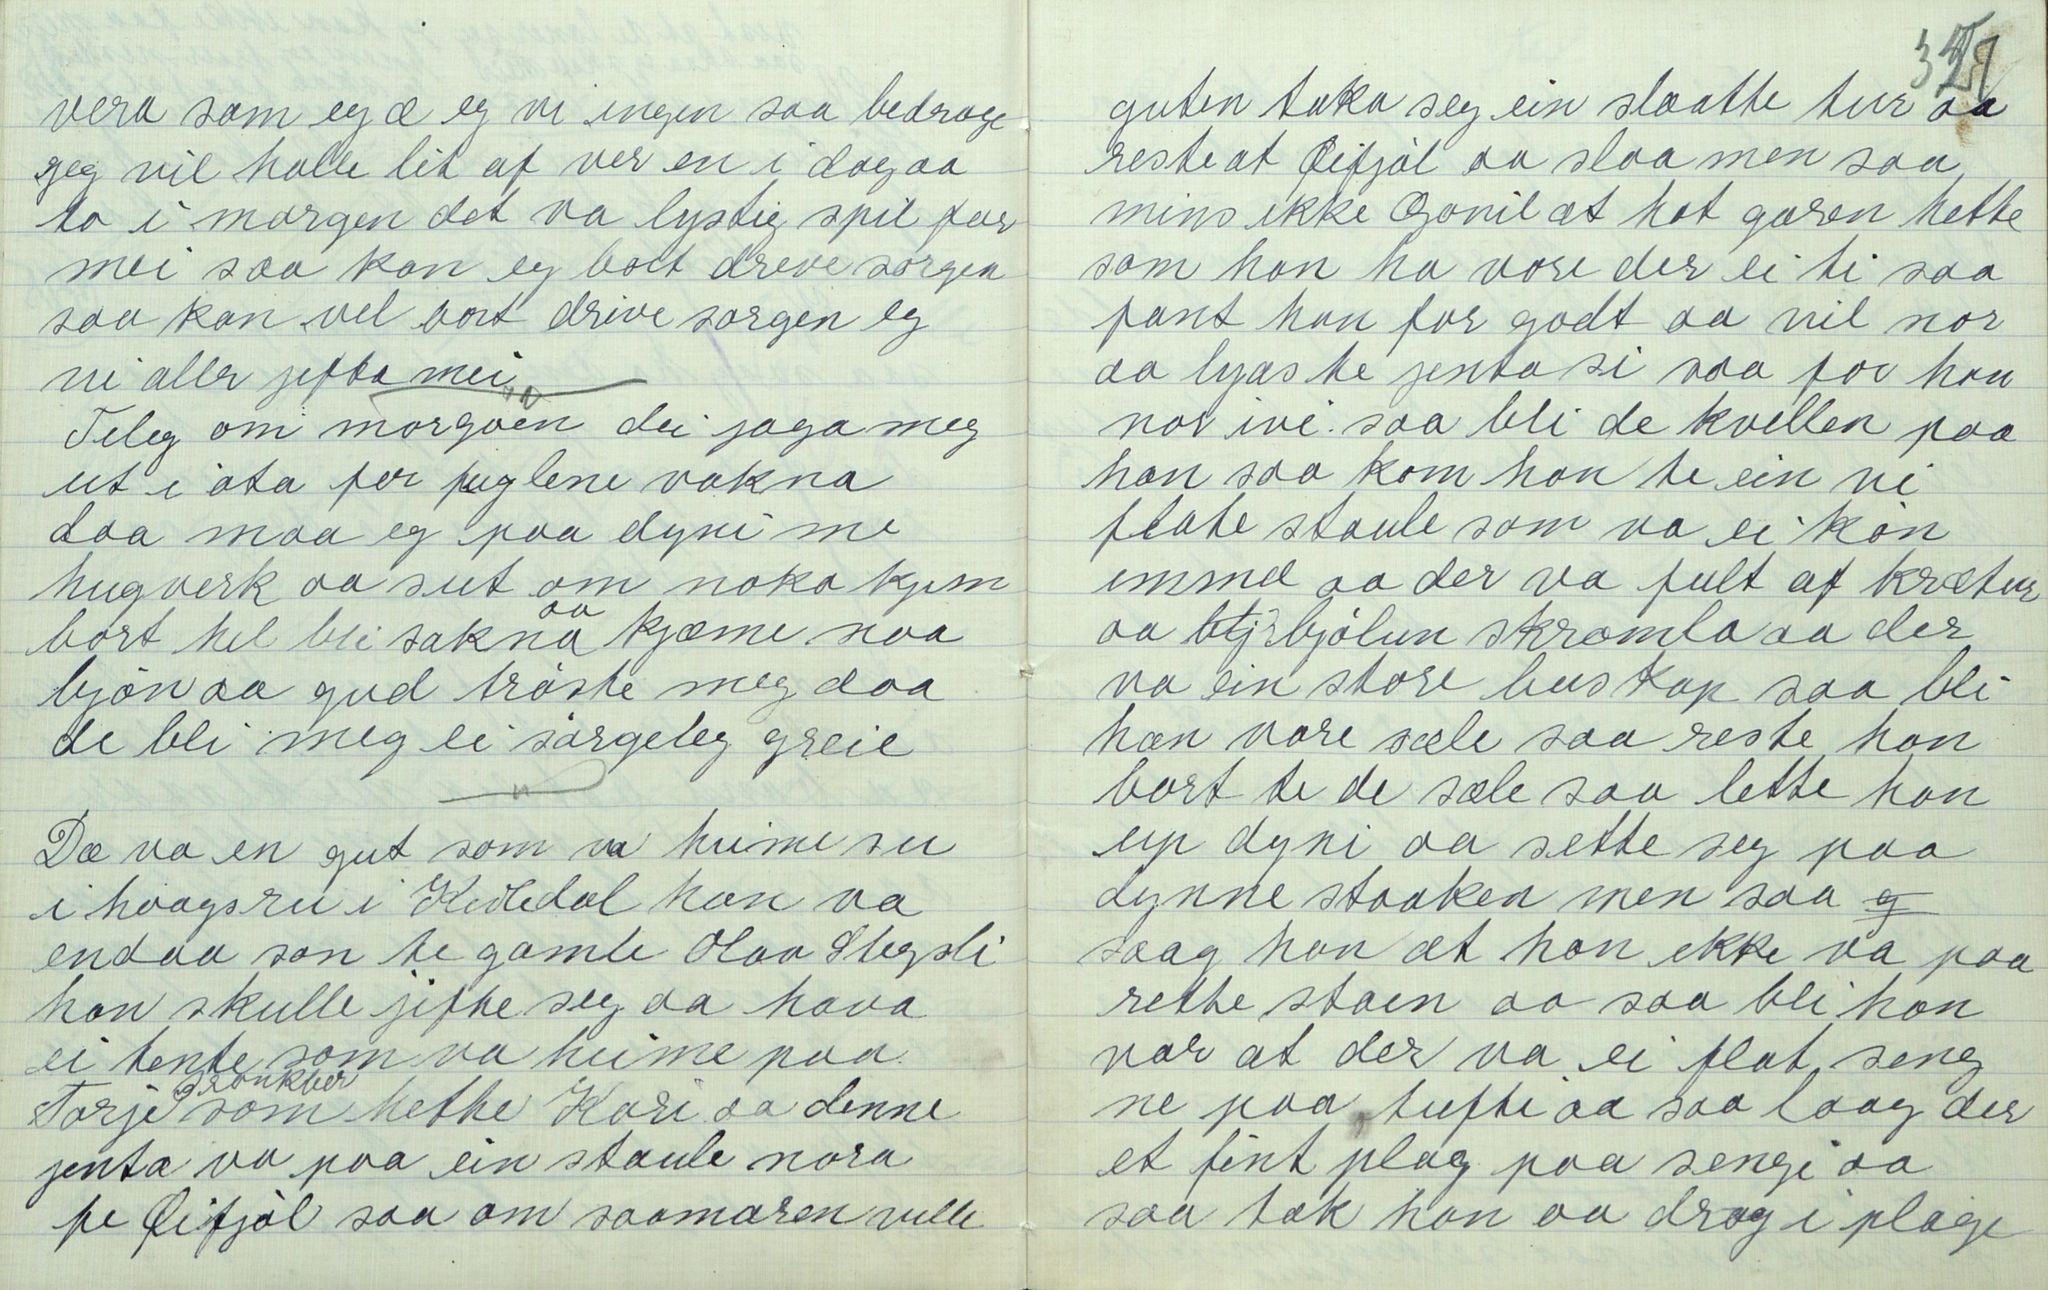 vera som eg æ eg vi ingen saa bedrage
jeg vil halle lit af ver en i dag aa
to i morgen det va lystig spil for
mei saa kan eg bort dreve sorgen
saa kan vel bort drive sorgen eg
vi aller jefta mei
Tileg om morgoen dei jaga meg
ut i ota før fuglene vakna
daa maa eg paa dyni me
hugverk aa sut om noka kjem
bort hel bli sakna aa kjæme naa
bjøn aa gud trøste meg daa
de bli meg ei sørgeleg greie
Dæ va en gut som va heime su
i haagsru i Kviledal han va
endaa son te gamle Olaa Stegsli
han skulle jifte seg aa hava
ei tente som va heime paa
Tarje Grankber som hette Kari aa denne
jenta va paa ein staule nora
pe Øifjøl saa om saamaren ville
327
guten taka seg ein slaatte tur aa
reste at Øifjøl aa slaa men saa
mins ikke Gonil at hot garen hette
som han ha vore der ei ti saa
fant han for godt aa vil nor
aa lyas te jenta si saa for han
nor ivi saa bli de kvellen paa
han saa kom han te ein vi
flate staule som va ei køn
immel aa der va fult af krætur
aa bjølun skramla aa der
va ein store buskap saa bli
han vare sæle saa reste han
bort te de sæle saa lette han
up dyni aa sette seg paa
dynne staaken men saa g
saag han at han ikke va paa
rette staen aa saa bli han
var at der va ei flat seng
ne paa tufti aa saa laag der
et fint plag paa sengi aa
saa tok han aa drog i plage